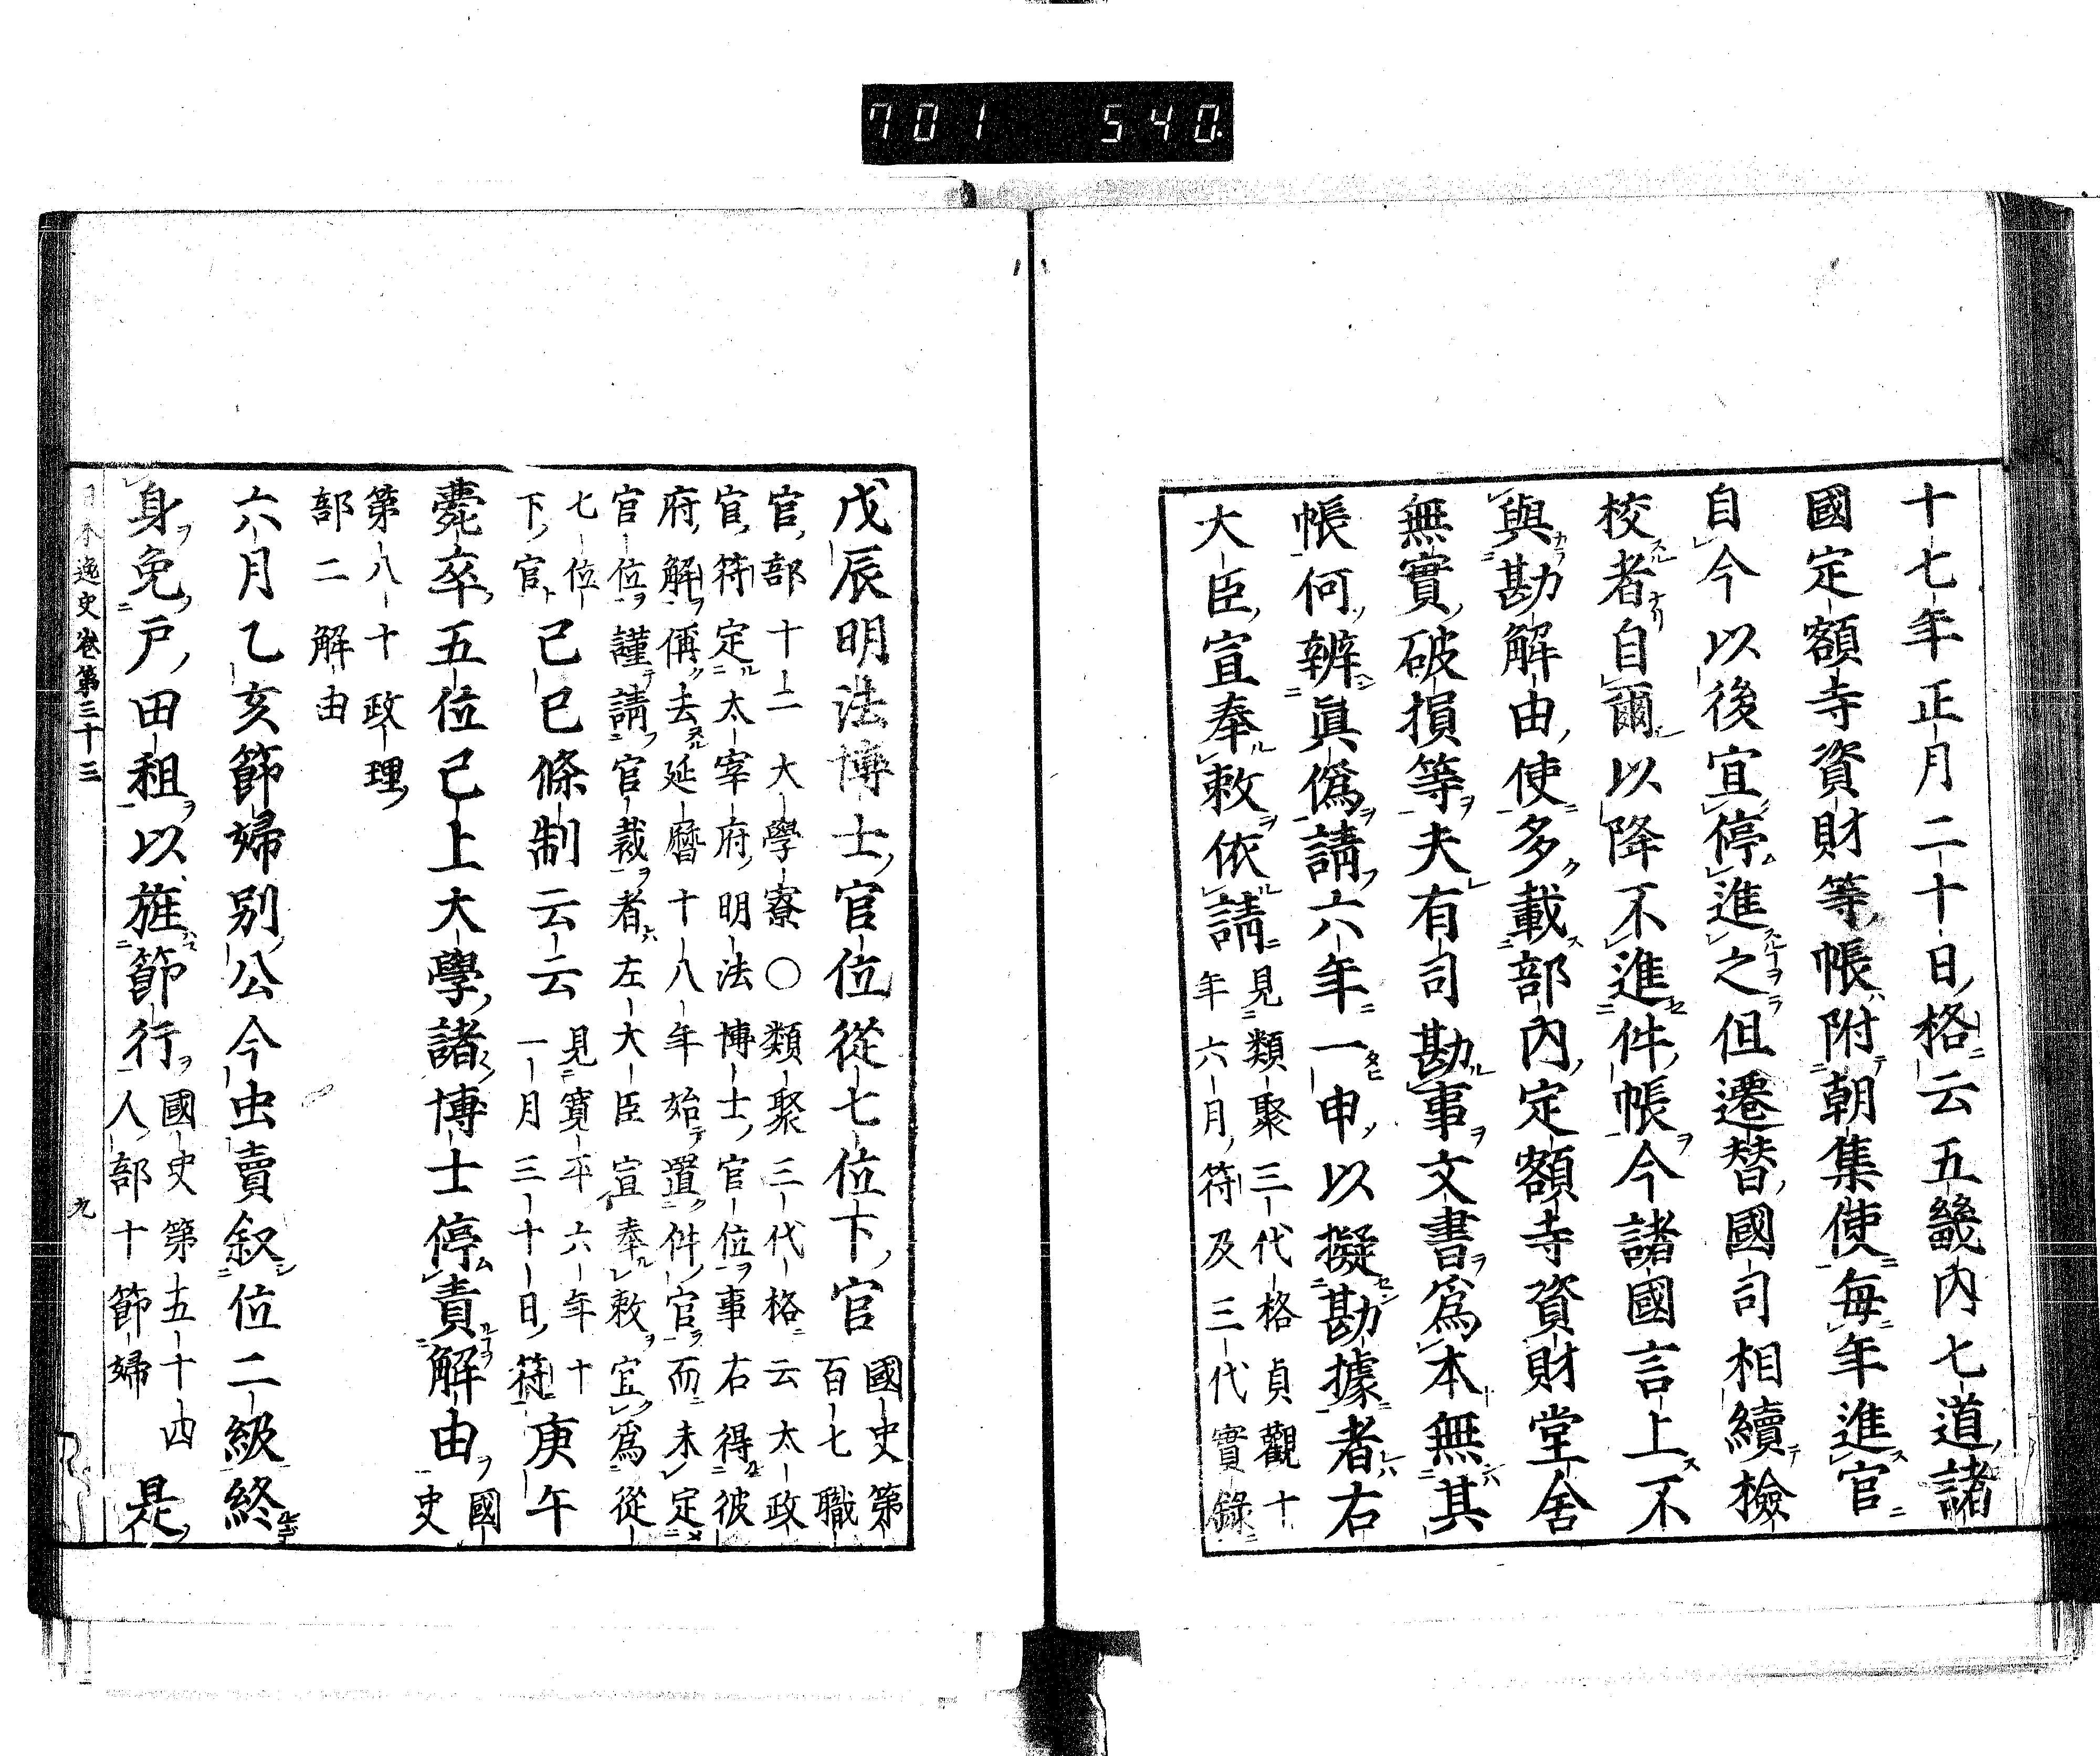 701 540.
十七年正月二十日格云五畿内七道諸
國定額寺資財等帳附朝集使毎年進官
自今以後宜停進之但遷替國司相續撿
校者自爾以降不進件帳今諸國言上不
與勘解由使多載部内定額寺資財堂舎
無實破損等夫有司勘事文書爲本無其
帳何辨眞僞請六年一申以擬勘據者右
大臣宣奉敕依請
見類聚三代格貞觀十
年六月符及三代實錄
戊辰明法博士官位從七位下官
國史第
百七職
官部十二大學寮〇類聚三代格云太政
官符定太宰府明法博士官位事右得彼
府解偁去延曆十八年始置件官而未定
官位謹請官裁者左大臣宣奉敕宜爲從
七位
下官
己巳條制云云
見寛平六年十
一月三十日符
庚午
薨卒五位已上大學諸博士停責解由
國
史
第八十政理
部二解由
六月乙亥節婦別公今虫賣叙位二級終
身免戸田租以旌節行
國史第五十四
人部十節婦
是
日本逸史卷第三十三 九